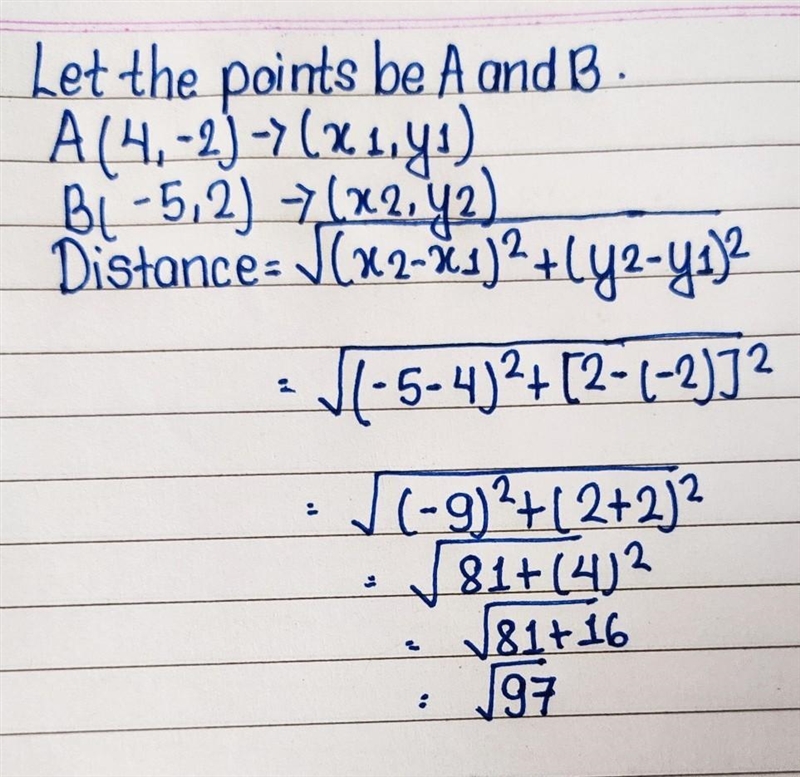 Let the points be A and B.
A(4,-2)→(x1,y1)
B(-5,2)→(x2,y2)
Distance=√(x2-x1)²+(y2-y1)²
=√(-5-4)²+[2-(-2)]²
=√(-9)²+(2+2)²
=√81+(4)²
=√81+16
=√97